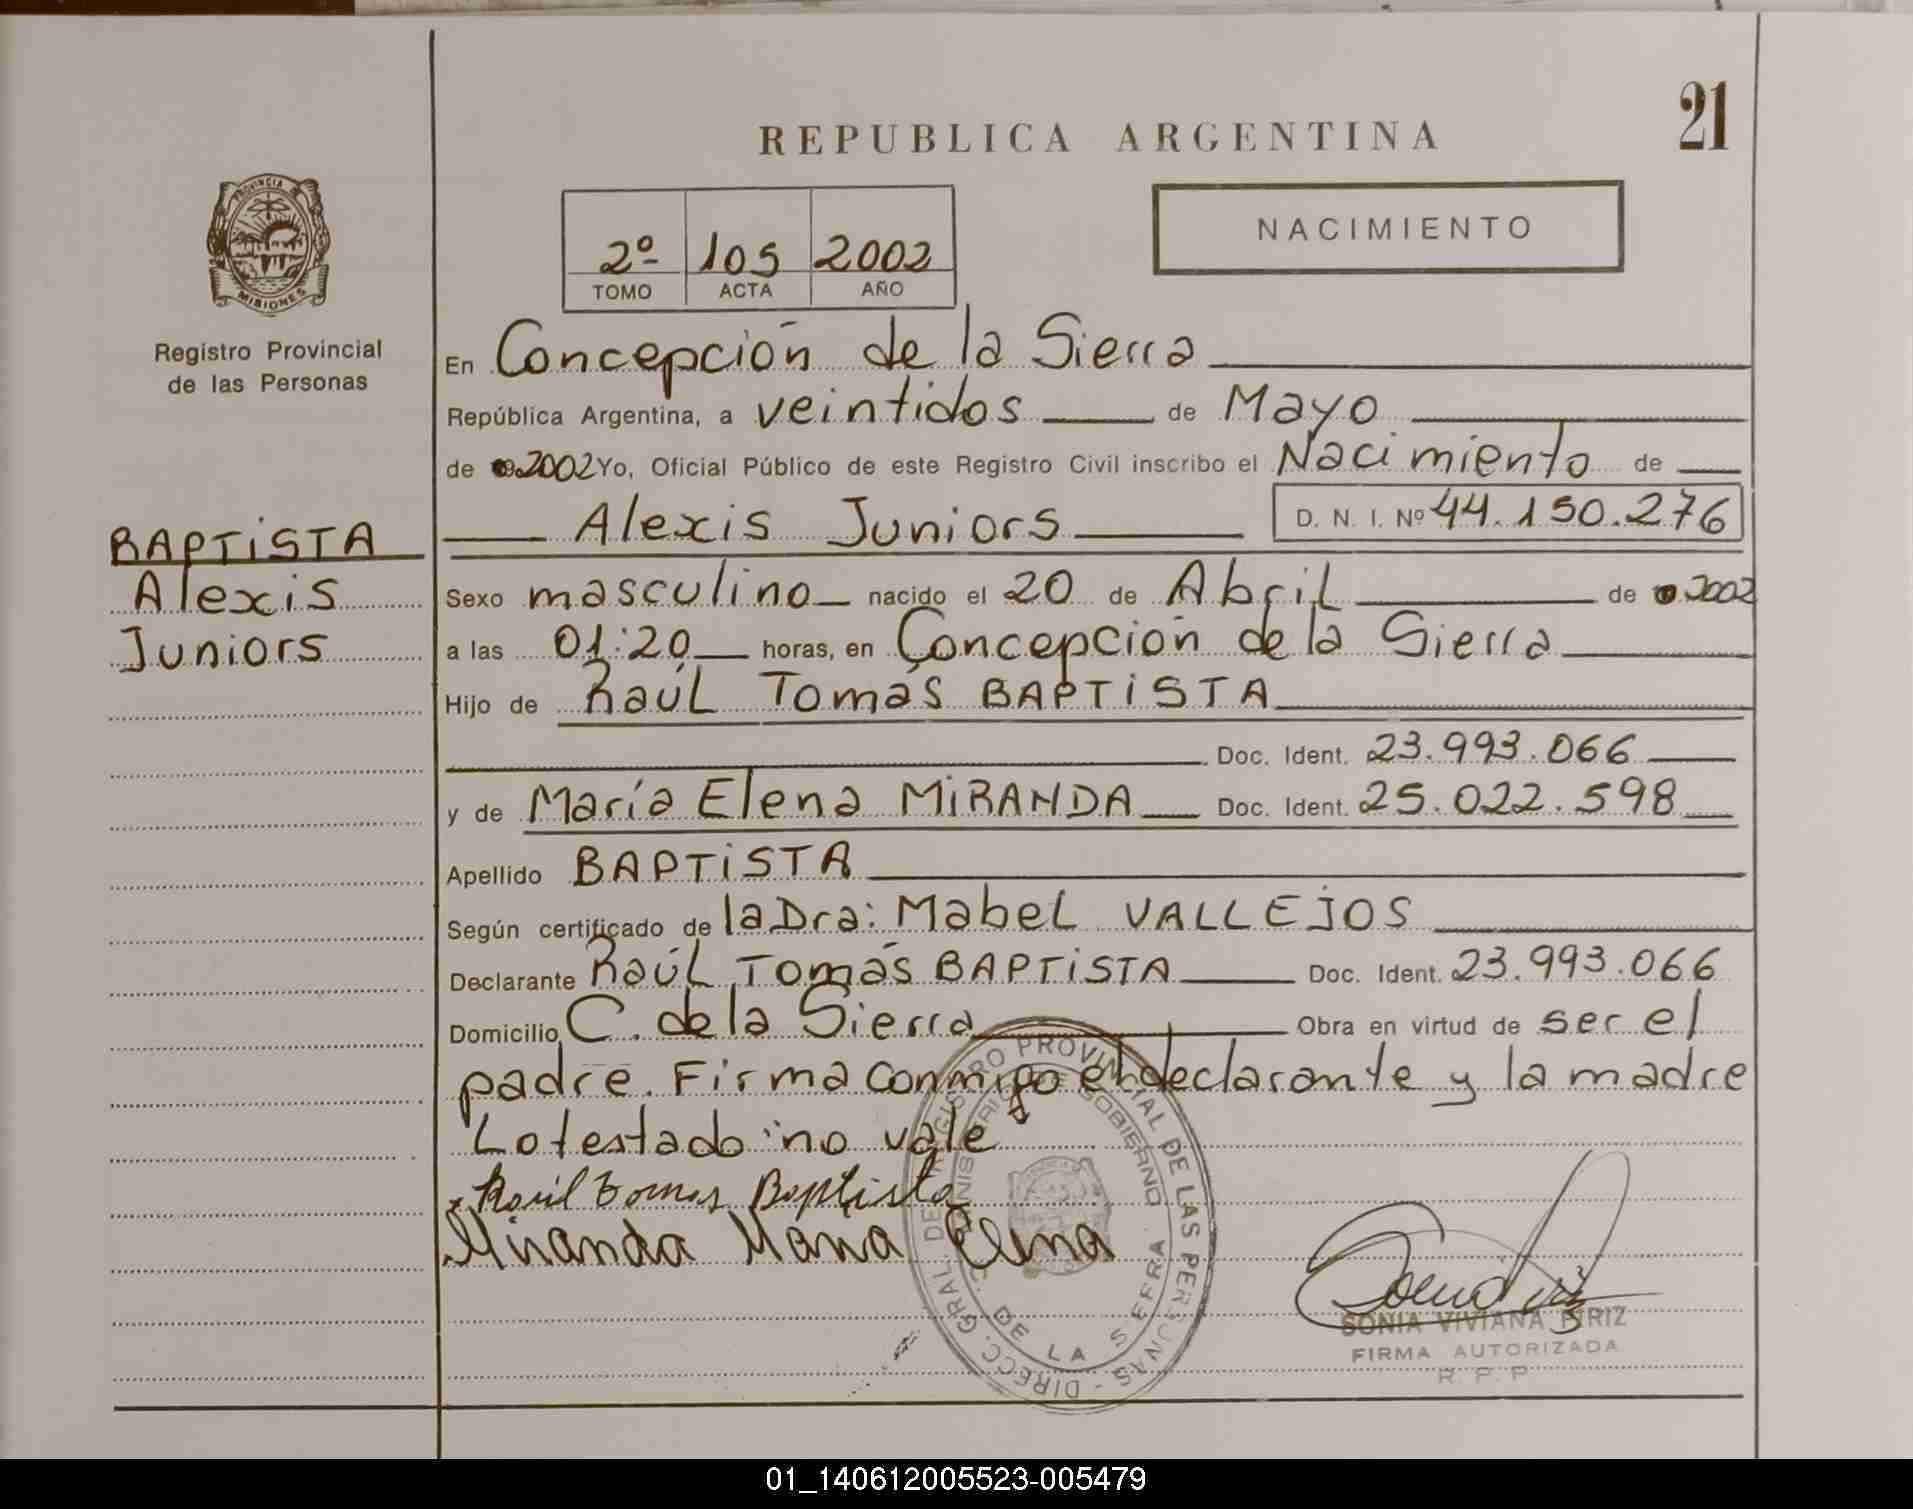 21
REPUBLICA ARGENTINA
NACIMIENTO
2º 105 2002
TOMO ACTA AÑO
PROVINCIA DE
MISIONES
Registro Provincial
de las Personas
BAPTISTA
Alexis
Juniors
En Concepción de la Sierra
República Argentina, a veintidos de Mayo
de 2002 Yo, Oficial Público de este Registro Civil inscribo el Nacimiento de
Alexis Juniors D. N. I. Nº 44.150.276
Sexo masculino nacido el 20 de Abril de 2002
a las 01:20 horas, en Concepción de la Sierra
Hijo de Raúl Tomás BAPTISTA
Doc. Ident. 23.993.066
y de María Elena MIRANDA Doc. Ident. 25.022.598
Apellido BAPTISTA
Según certificado de la Dra: Mabel VALLEJOS
Declarante Raúl Tomás BAPTISTA Doc. Ident. 23.993.066
Domicilio C. de la Sierra Obra en virtud de ser el
padre. Firma conmigo el declarante y la madre
Lo testado: no vale
Raúl Tomas Baptista
Miranda María Elena
DIRECC. GRAL. DE REGISTRO PROVINCIAL DE LAS PERSONAS
GOBIERNO
DE LA SIERRA
SONIA VIVIANA PIRIZ
FIRMA AUTORIZADA
R. P. P
01_140612005523-005479